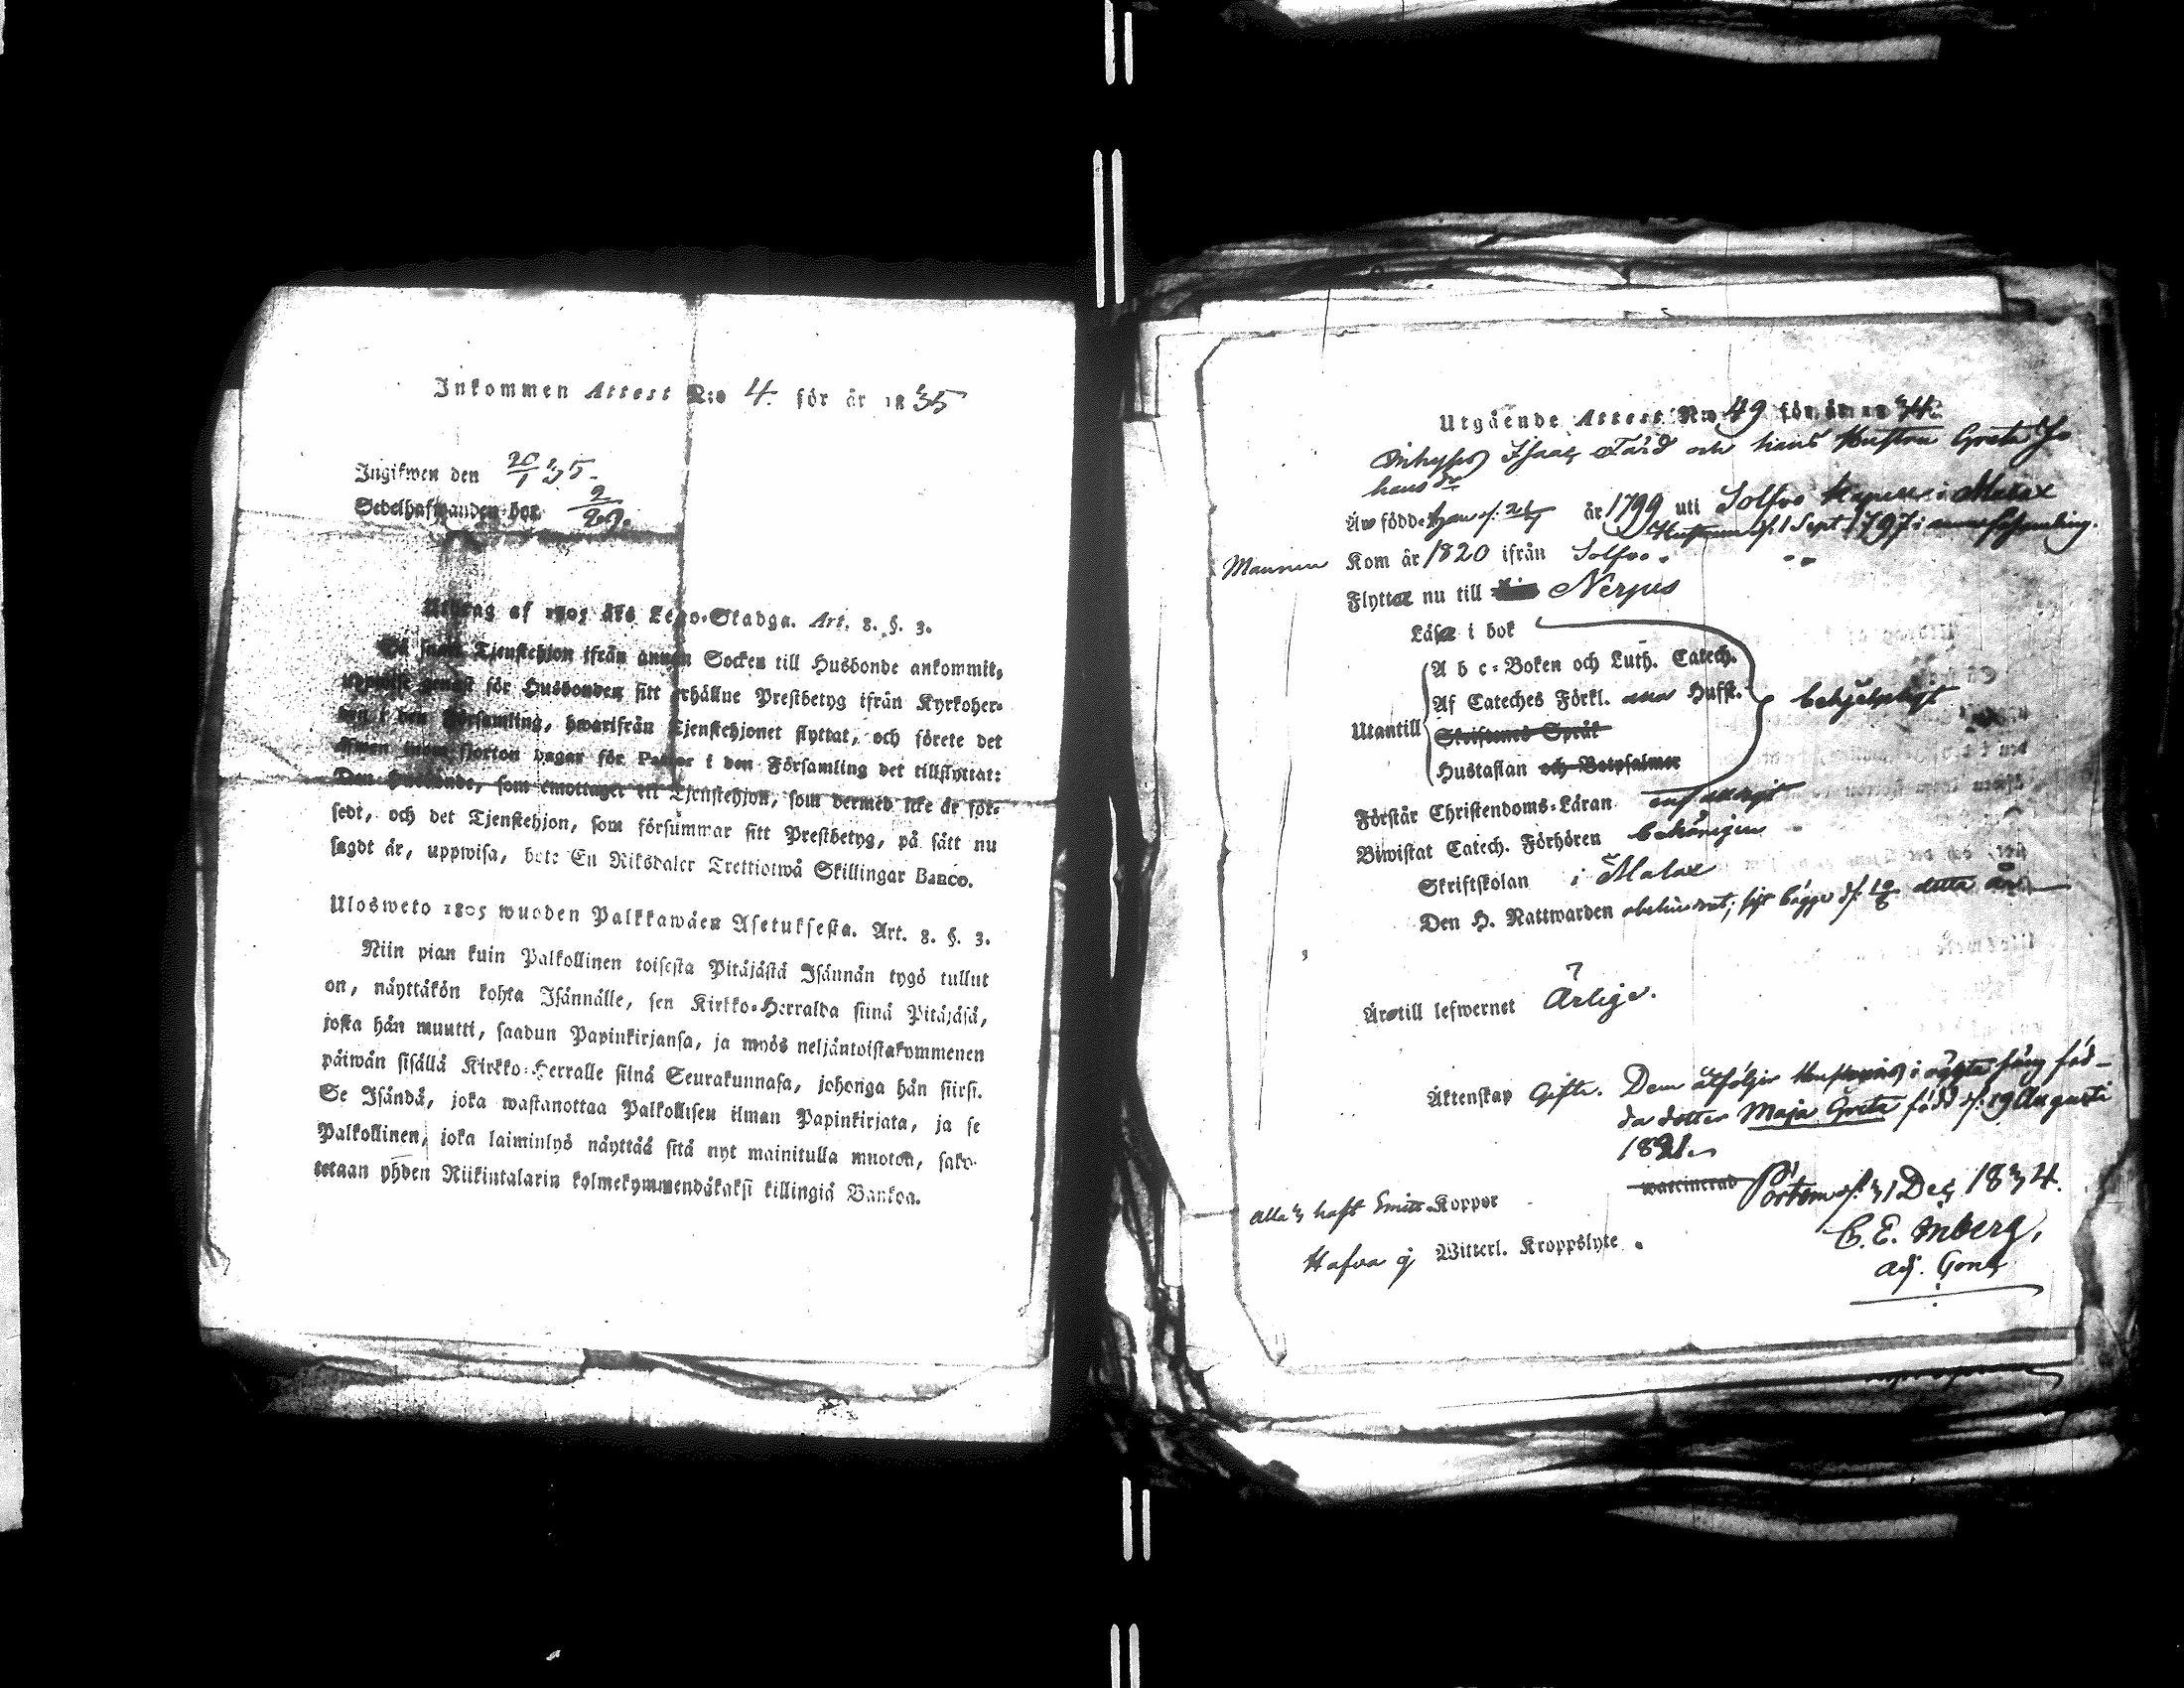 Inkommen Attest N:o 4. för år 1835
Ingifwen den 20/1 35.
Sedelhafwanden bor 2/29.
Utdrag af 1805 års Lego-Stadga. Art. 8. §. 3.
Så snart Tjenstehjon ifrån annan Socken till Husbonde ankommit,
uppwise genast för Husbonden sitt erhållne Prestbetyg ifrån Kyrkoher-
den i den Församling, hwarifrån Tjenstehjonet flyttat, och förete det
äfwen inom fjorton dagar för Pastor i den Församling det tillflyttat:
Den Husbonde, som emottager ett Tjenstehjon, som dermed icke är för-
sedt, och det Tjenstehjon, som försummar sitt Prestbetyg, på sätt nu
sagdt är, uppwisa, böte En Riksdaler Trettiotwå Skillingar Banco.
Ulosweto 1805 wuoden Palkkawäen Asetuksesta. Art. 8. §. 3.
Niin pian kuin Palkollinen toisesta Pitäjästä Isännän tygö tullut
on, näyttäkön kohta Isännälle, sen Kirkko-Herralda siinä Pitäjäsä,
josta hän muutti, saadun Papinkirjansa, ja myös neljäntoistakymmenen
päiwän sisällä Kirkko-Herralle siinä Seurakunnasa, johonga hän siirsi.
Se Isändä, joka wastanottaa Palkollisen ilman Papinkirjata, ja se
Palkollinen, joka laiminlyö näyttää sitä nyt mainitulla muoton, sako-
tetaan yhden Riikintalarin kolmekymmendäkaksi killingiä Bankoa.
Utgående Attest N:o 49 för år 1834.
Inhyses Isaac Färd och hans Hustru Greta Jo
hans dr
Äro födde han d. år 1799 uti Solfvo Kapell i Malax
Hustrun d. 1 Sept 1797 i församling.
Mannen Kom år 1820 ifrån Solfvo
Flytta nu till Nerpes
Läsa i bok
A b c-Boken och Luth. Catech.
Af Cateches Förkl. Hufst.
Utantill
Skriftenes Språk
Hustaflan och Botpsalmer
behjelpligt
Förstår Christendoms-Läran enfaldigt
Biwistat Catech. Förhören behörigen
Skriftskolan i Malax
Den H. Nattwarden obehindrat; sist begge d. detta år
Äro till lefwernet Ärlige.
Äktenskap Gifte. Dem åtföljer Hustruns i ägta säng föd-
da dotter Maja Greta född d. 19 Augusti
1821.
Alla 3 haft Smitt-Koppor waccinerad Pörtom d. 31 Dec 1834.
Hafva ej Witterl. Kroppslyte. C. E. Inberg,
Adj.